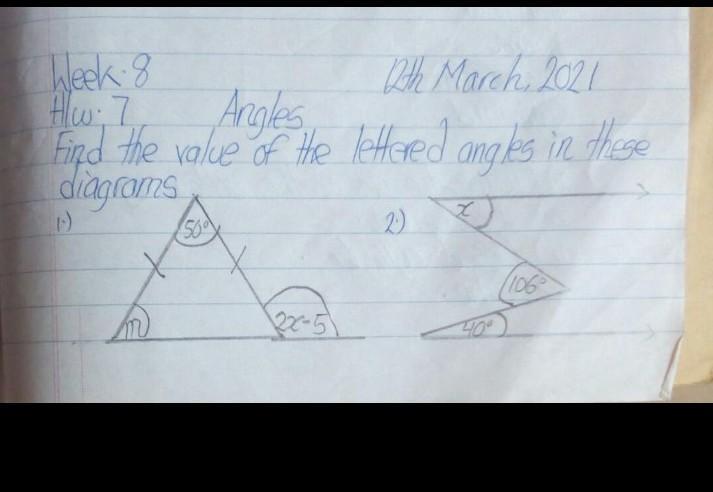 Week·8 12th March, 2021
H/w·7 Angles
Find the value of the lettered angles in these
diagrams
1·) 50° m 2x-5
2·) x 106° 40°